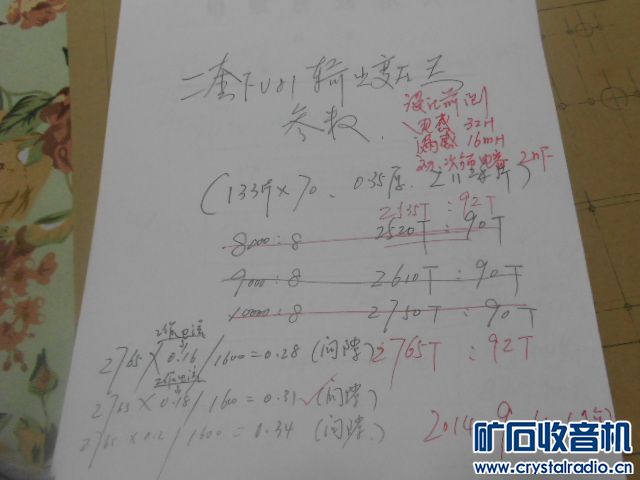 二套FU81输出变压器
参数
设计前测
电感 32H
漏感 16mH
初、次级电容 2nF
(133片×70、0.35厚、Z11
2535T : 92T
8000:8 2520T : 90T
9000:8 2610T : 90T
10000:8 2750T : 90T
工作电流
2765×0.16/1600=0.28(间隙) 2765T : 92T
工作电流
2765×0.18/1600=0.31(间隙)
2765×0.2/1600=0.34(间隙)
2014 9
矿石收音机
www.crystalradio.cn